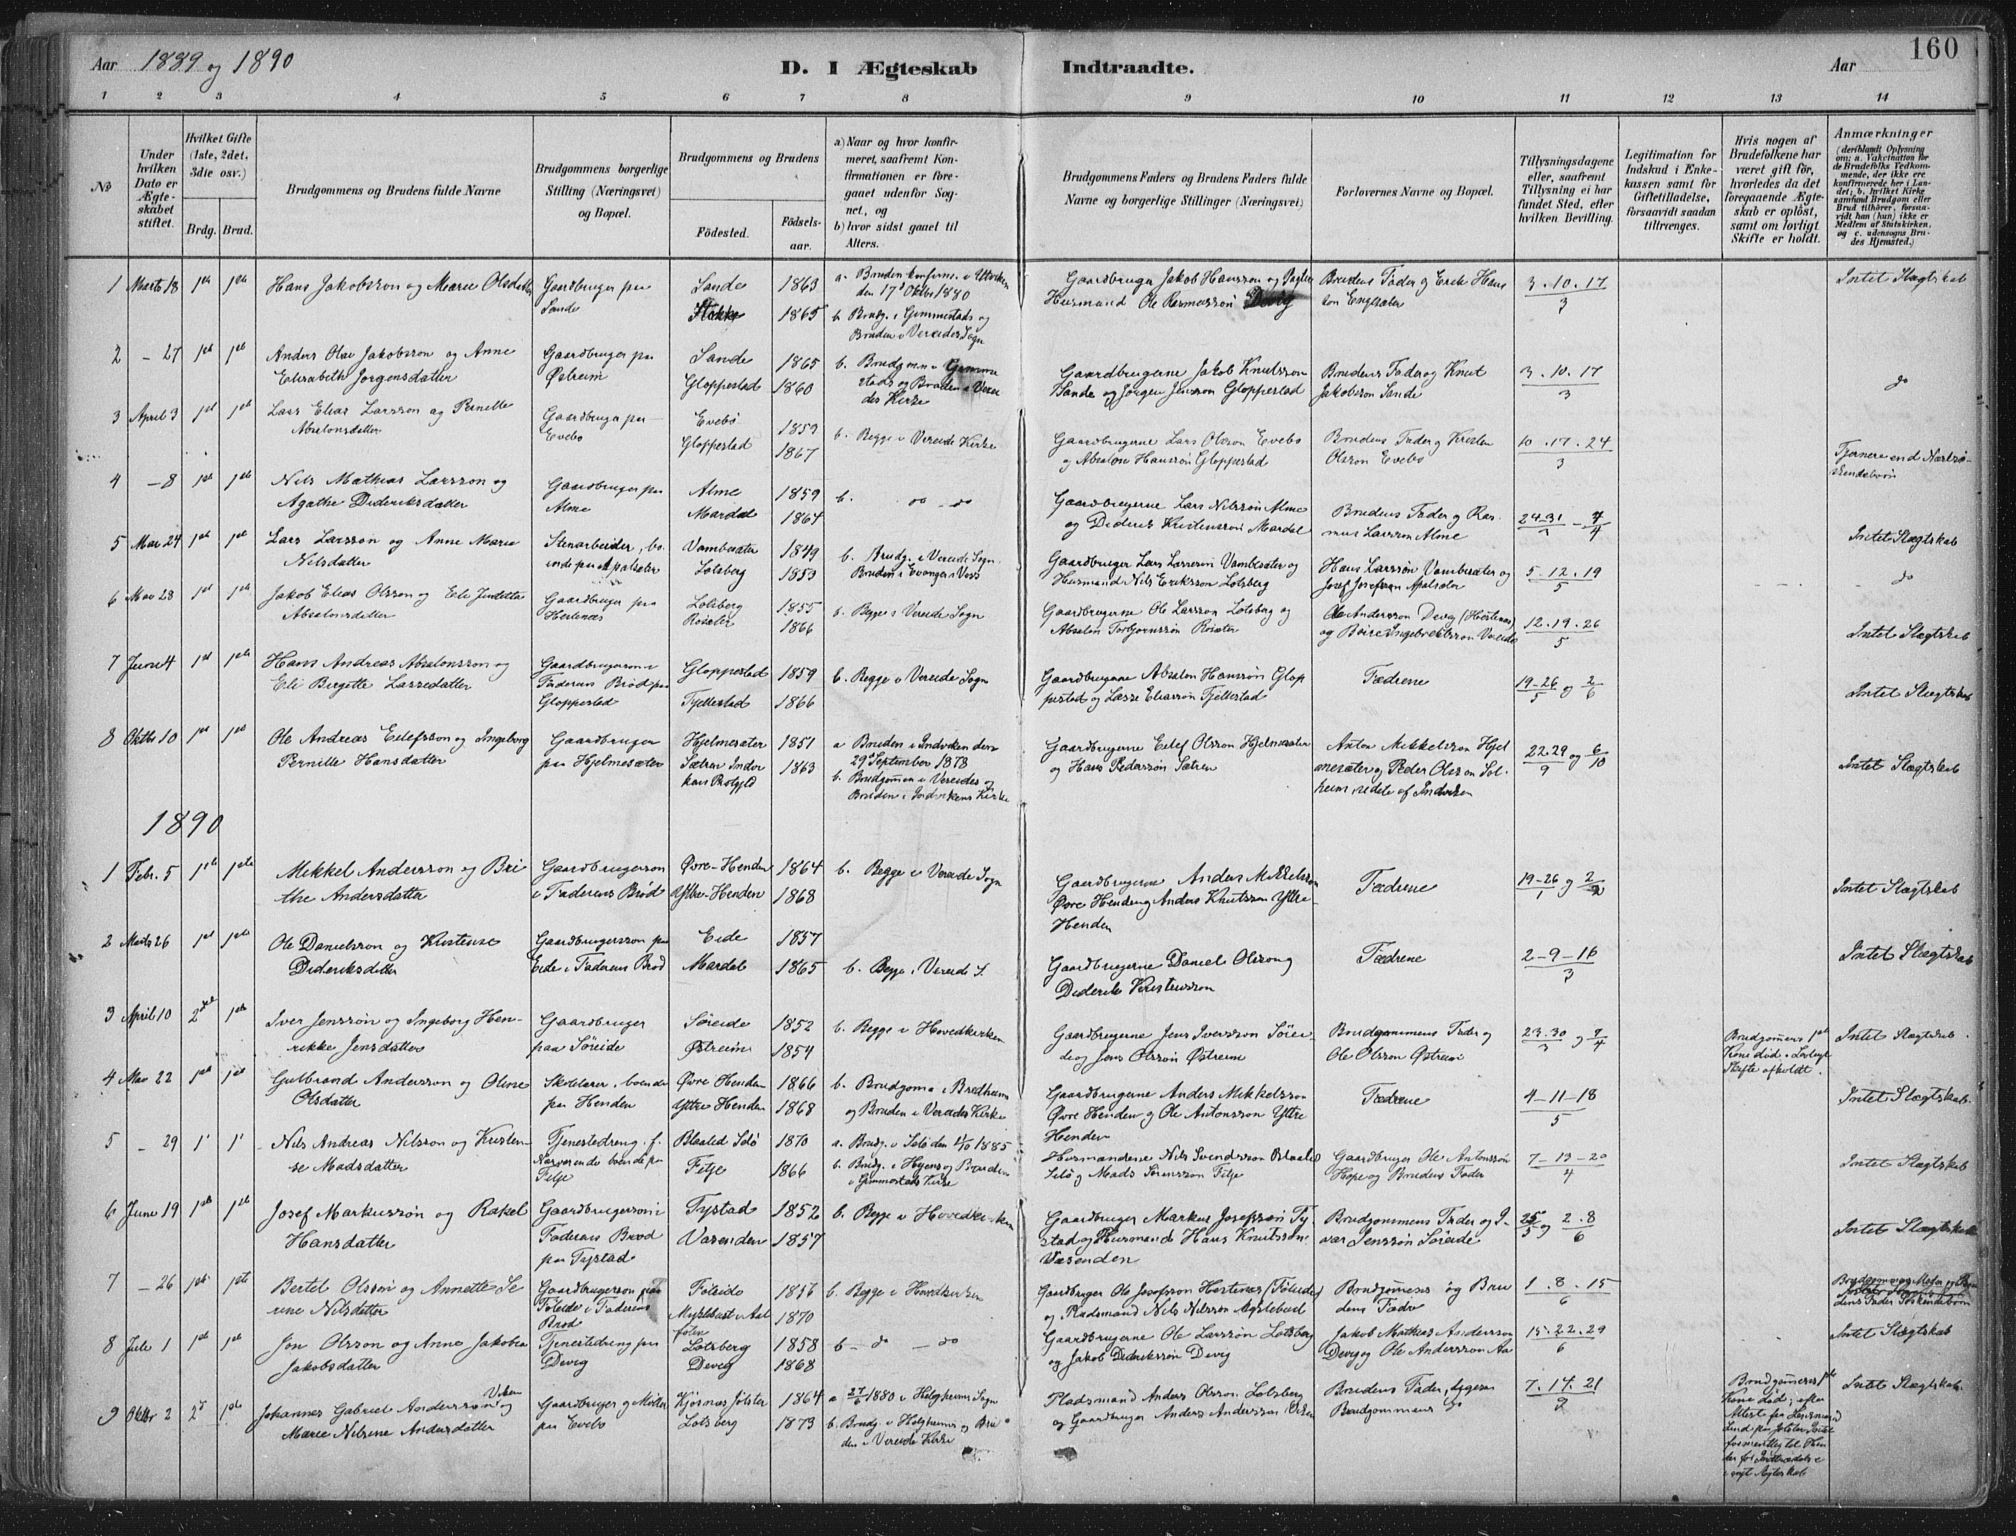 Aar 1889 og 1890
D. I Ægteskab Indtraadte.
Aar
160
1 2 3 4 5 6 7 8 9 10 11 12 13 14
No
Under hvilken Dato er Ægteskabet stiftet.
Hvilket Gifte (1ste, 2det, 3die osv.)
Brdg. Brud.
Brudgommens og Brudens fulde Navne
Brudgommens borgerlige Stilling (Næringsvei) og Bopæl.
Brudgommens og Brudens
Fødested.
Fødselsaar.
a) Naar og hvor konfirmeret, saafremt Konfirmationen er foregaaet udenfor Sognet, og
b) hvor sidst gaaet til Alters.
Brudgommens Faders og Brudens Faders fulde Navne og borgerlige Stillinger (Næringsvei)
Forlovernes Navne og Bopæl.
Tillysningsdagene eller, saafremt Tillysning ei har fundet Sted, efter hvilken Bevilling.
Legitimation for Indskud i Enkekassen samt for Giftetilladelse, forsaavidt saadan tiltrænges.
Hvis nogen af Brudefolkene har været gift før, hvorledes da det foregaaende Ægteskab er opløst, samt om lovligt Skifte er holdt.
Anmærkninger (deriblandt Oplysning om: a. Vakcination for de Brudefolks Vedkommende, der ikke ere konfirmerede her i Landet; b. hvilket Kirkesamfund Brudgom eller Brud tilhører, forsaavidt han (hun) ikke er Medlem af Statskirken, og c. udensogns Brudes Hjemsted.)
1 Marts 18 1ste 1ste Hans Jakobsson og Marie Olsdatter Gaardbruger paa Sande Sande 1863 1865 a Bruden konfirm. i Utviken den 17de Oktbr 1880
b. Brudg. i Gimmestads og Bruden i Vereides Sogn
Gaardbruger Jakob Hansson og Husmand Ole Rasmussøn Devig Brudens Fader og Erik Hansson Engesæter 3. 10. 17/3 Intet Slægtskab
2 - 27 1ste 1ste Anders Olai Jakobsson og Anne Elisabeth Jørgensdatter Gaardbruger paa Østreim Sande 1865 Gloppestad 1860 b. Brudgom. i Gimmestads og Bruden i Vereides Kirke
Gaardbrugerne Jakob Knutsson Sande og Jørgen Jensson Gloppestad Brudens Fader og Knut Jakobsson Sande 3. 10. 17/3 do
3 April 3 1ste 1ste Lars Elias Larsson og Pernille Absalonsdatter Gaardbruger paa Evebø Evebø 1859 Gloppestad 1867 b. Begge i Vereide Kirke
Gaardbrugerne Lars Olsson Evebø og Absalon Hanssøn Gloppestad Brudens Fader og Kristen Olsson Evebø 10. 17. 24/3 Fjernere end Næstsøskendebørn
4 - 8 1ste 1ste Nils Mathias Larsson og Agathe Dideriksdatter Gaardbruger paa Alme Alme 1859 Mardal 1864 b. do - do
Gaardbrugerne Lars Nilssøn Alme og Diderik Kristenssøn Mardal Brudens Fader og Rasmus Larsson Alme 24. 31/3 - 7/4 Intet Slægtskab
5 Mai 24 1ste 1ste Lars Larsson og Anne Marie Nilsdatter Stenarbeider, boende paa Apalsæter Vambesæter 1849 Lotsberg 1853 b. Brudg. i Vereide Sogn Bruden i Evanger, Voss
Gaardbruger Lars Larsson Vambesæter og Husmand Nils Eriksson Lotsberg Hans Larssøn Vambesæter og Josef Josefson Apalsæter 5. 12. 19/5 do
6 Mai 28 1ste 1ste Jakob Elias Olsson og Eli Absalonsdatter Gaardbruger paa Hestenæs Lotsberg 1855 Rosæter 1866 b. Begge i Vereide Sogn
Gaardbrugerne Ole Larsson Lotsberg og Absalon Torbjørnssøn Rosæter Ole Andersson Devig (Hestenæs) og Børre Ingebretsson Vereide 12. 19. 26/5 Intet Slægtskab
7 Juni 4 1ste 1ste Hans Andreas Absalonsson og Eli Birgitte Lassedatter Gaardbrugerson i Faderens Brød paa Gloppestad Gloppestad 1859 Fjellestad 1866 b. Begge i Vereide Sogn
Gaardbrugerne Absalon Hanssøn Gloppestad og Lasse Eliassøn Fjellestad Fædrene 19-26/5 og 2/6 Intet Slægtskab
8 Oktbr 10 1ste 1ste Ole Andreas Eilefsson og Ingeborg Pernille Hansdatter Gaardbruger paa Hjelmesæter Hjelmesæter 1851 Sætren Indviken 1863 a Bruden i Indviken den 29 September 1878
b. Brudgommen i Vereides og Bruden i Indvikens Kirke
Gaardbrugerne Eilef Olsson Hjelmesæter og Hans Pederssøn Sætren Anton Mikkelsson Hjelmesæter og Peder Olsson Solheim, 22. 29/9 og 6/10 Intet Slægtskab
1890
1 Febr. 5 1ste 1ste Mikkel Andersson og Brithe Andersdatter Gaardbrugerson i Faderens Brød Øvre-Henden 1864 Ytre-Henden 1868 b. Begge i Vereide Sogn
Gaardbrugerne Anders Mikkelsson Øvre Henden og Anders Knutsson Yttre Henden Fædrene 19-26/1 og 2/2 Intet Slægtskab
2 Marts 26 1ste 1ste Ole Danielsson og Kristense Dideriksdatter Gaardbrugersson paa Eide i Faderens Brød Eide 1857 Mardal 1865 b. Begge i Vereide S.
Gaardbrugerne Daniel Olsson og Diderik Kristensson Fædrene 2-9-16/3 Intet Slægtskab
3 April 10 2det 1ste Iver Jenssøn og Ingeborg Henrikke Jensdatter Gaardbruger paa Søreide Søreide 1852 Østreim 1854 b. Begge i Hovedkirken
Gaardbrugerne Jens Iversson Søreide og Jens Olssøn Østreim Brudgommens Fader og Ole Olsson Østreim 23. 30/3 og 7/4 Brudgommens 1ste Kone død. Lovligt Skifte afholdt. Intet Slægtskab.
4 Mai 22 1ste 1ste Gulbrand Andersson og Oline Olsdatter Skolelærer, boende paa Henden Øvre Henden 1866 Yttre Henden 1868 b. Brudgom. i Bredheims og Bruden i Vereide Kirke
Gaardbrugerne Anders Mikkelsson Øvre Henden og Ole Antonsson Yttre Henden Fædrene 4-11-18/5 Intet Slægtskab
5 - 29 1 1 Nils Andreas Nilsson og Kristense Madsdatter Tjenestedreng, f. Nærværende boende paa Fitje Selø 1870 Fitje 1866 a. Brudg. i Selø den 1885
b. Brudg. i Hyens og Bruden i Gimmestads Kirke
Husmændene Nils Svendsson Selø og Mads Sørensson Fitje Gaardbruger Ole Antonssøn Hope og Brudens Fader 7-13-20/4 Intet Slægtskab
6 Juni 19 1ste 1ste Josef Markussøn og Rakel Hansdatter Gaardbrugerson i Faderens Brød paa Tystad Tystad 1852 Vasenden 1857 b. Begge i Hovedkirken
Gaardbruger Markus Josefssøn Tystad og Husmand Hans Knutsson Vasenden Brudgommens Fader og Ivar Jenssøn Søreide 25/5 og 2. 8/6 Intet Slægtskab
7 - 26 1ste 1ste Bertel Olsson og Annette Serine Nilsdatter Gaardbrugerson paa Føleide i Faderens Brød Føleide 1856 Myklebust i Aalfoten 1870 b. Begge i Hovedkirken
Gaardbruger Ole Josefsson Hestenæs (Føleide) og Pladsmand Nils Nilsson Brudgommens og Brudens Fædre 1. 8. 15/6
8 Juli 1 1ste 1ste Jon Olsson og Anne Jakobea Jakobsdatter Tjenestedreng paa Devig Lotsberg 1858 Devig 1868 b - do - do
Gaardbrugerne Ole Larssøn Lotsberg og Jakob Dideriksson Devig Jakob Mathias Andersson Devig og Ole Andersson 15. 22. 29/6 Intet Slægtskab
9 Oktbr 2 2det 1ste Johannes Gabriel Andersson og Marie Nilsine Andersdatter Gaardbruger og Møller paa Evebø Kjøsnæs Jølster 1864 Lotsberg 1873 a 27/6 1880 i Helgheims Sogn
b. Brudg. i Helgheims og Bruden i Vereide Kirke
Pladsmand Anders Olsson Lotsberg og Gaardbruger Anders Andersson Brudens Fader, Brudgommens do 7. 14. 21 Brudgommens 1ste Kone død; efter Attest fra Lensmand i Jølster Intet Slægtskab